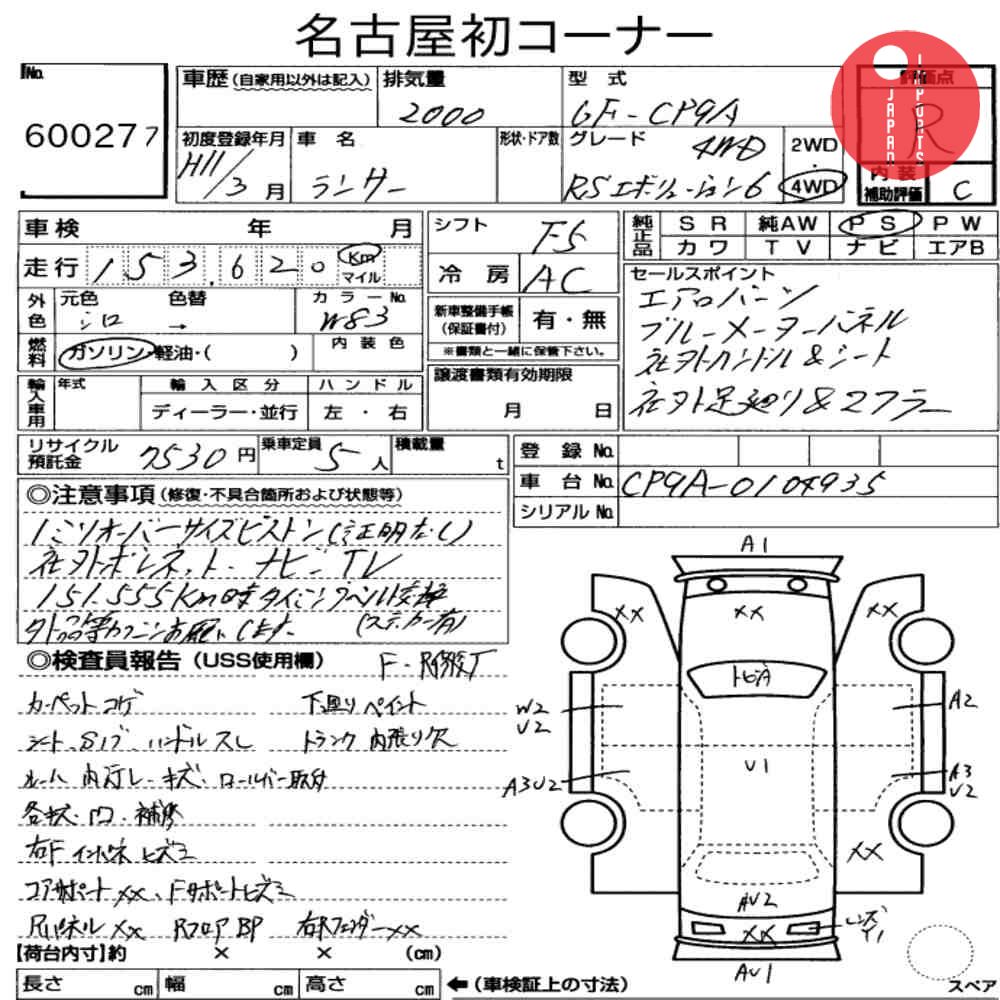 名古屋初コーナー
No. 600277
車歴(自家用以外は記入)
排気量 2000
型式 GF-CP9A
評価点 R
JAPAN IMPORTS
初度登録年月 H11/3月
車名 ランサー
形状・ドア数
グレード 4WD
RSエボリューション6
2WD・4WD
内装補助評価 C
車検 年 月
走行 153,620 Km マイル
外色 元色 シロ 色替 → カラーNo. W83
燃料 ガソリン・軽油・( ) 内装色
輸入車用 年式 輸入区分 ディーラー・並行 ハンドル 左・右
シフト F5
冷房 AC
新車整備手帳(保証書付) 有・無
※書類と一緒に保管下さい。
譲渡書類有効期限
月 日
純正品 SR 純AW PS PW
カワ TV ナビ エアB
セールスポイント
エアロパーツ
ブルーメーターパネル
社外ハンドル&シート
社外足廻り&マフラー
リサイクル預託金 7530円
乗車定員 5人
積載量 t
登録No.
車台No. CP9A-0104935
シリアルNo.
◎注意事項(修復・不具合箇所および状態等)
1ミリオーバーサイズピストン(証明なし)
社外ボンネット・ナビ・TV
151.555Km時タイミングベルト交換
(ステッカー有)
◎検査員報告(USS使用欄) F・R修復歴
カーペットコゲ 下廻りペイント
シート、S/ブ、ハンドルスレ トランク内張り欠
ルーム内汚レ・キズ・ロールバー取付
各キズ・凹・補修
右Fインパネヒズミ
コアサポートXX、Fサポートヒズミ
RパネルXX RフロアBP 右RフェンダーXX
【荷台内寸】約 × × (cm)
長さ cm 幅 cm 高さ cm ←(車検証上の寸法)
A1
XX XX XX
トビ石A
W2 U2
A2
U1
A3U2
A3 U2
XX
AU2
XX
レンズY1
AU1
スペア